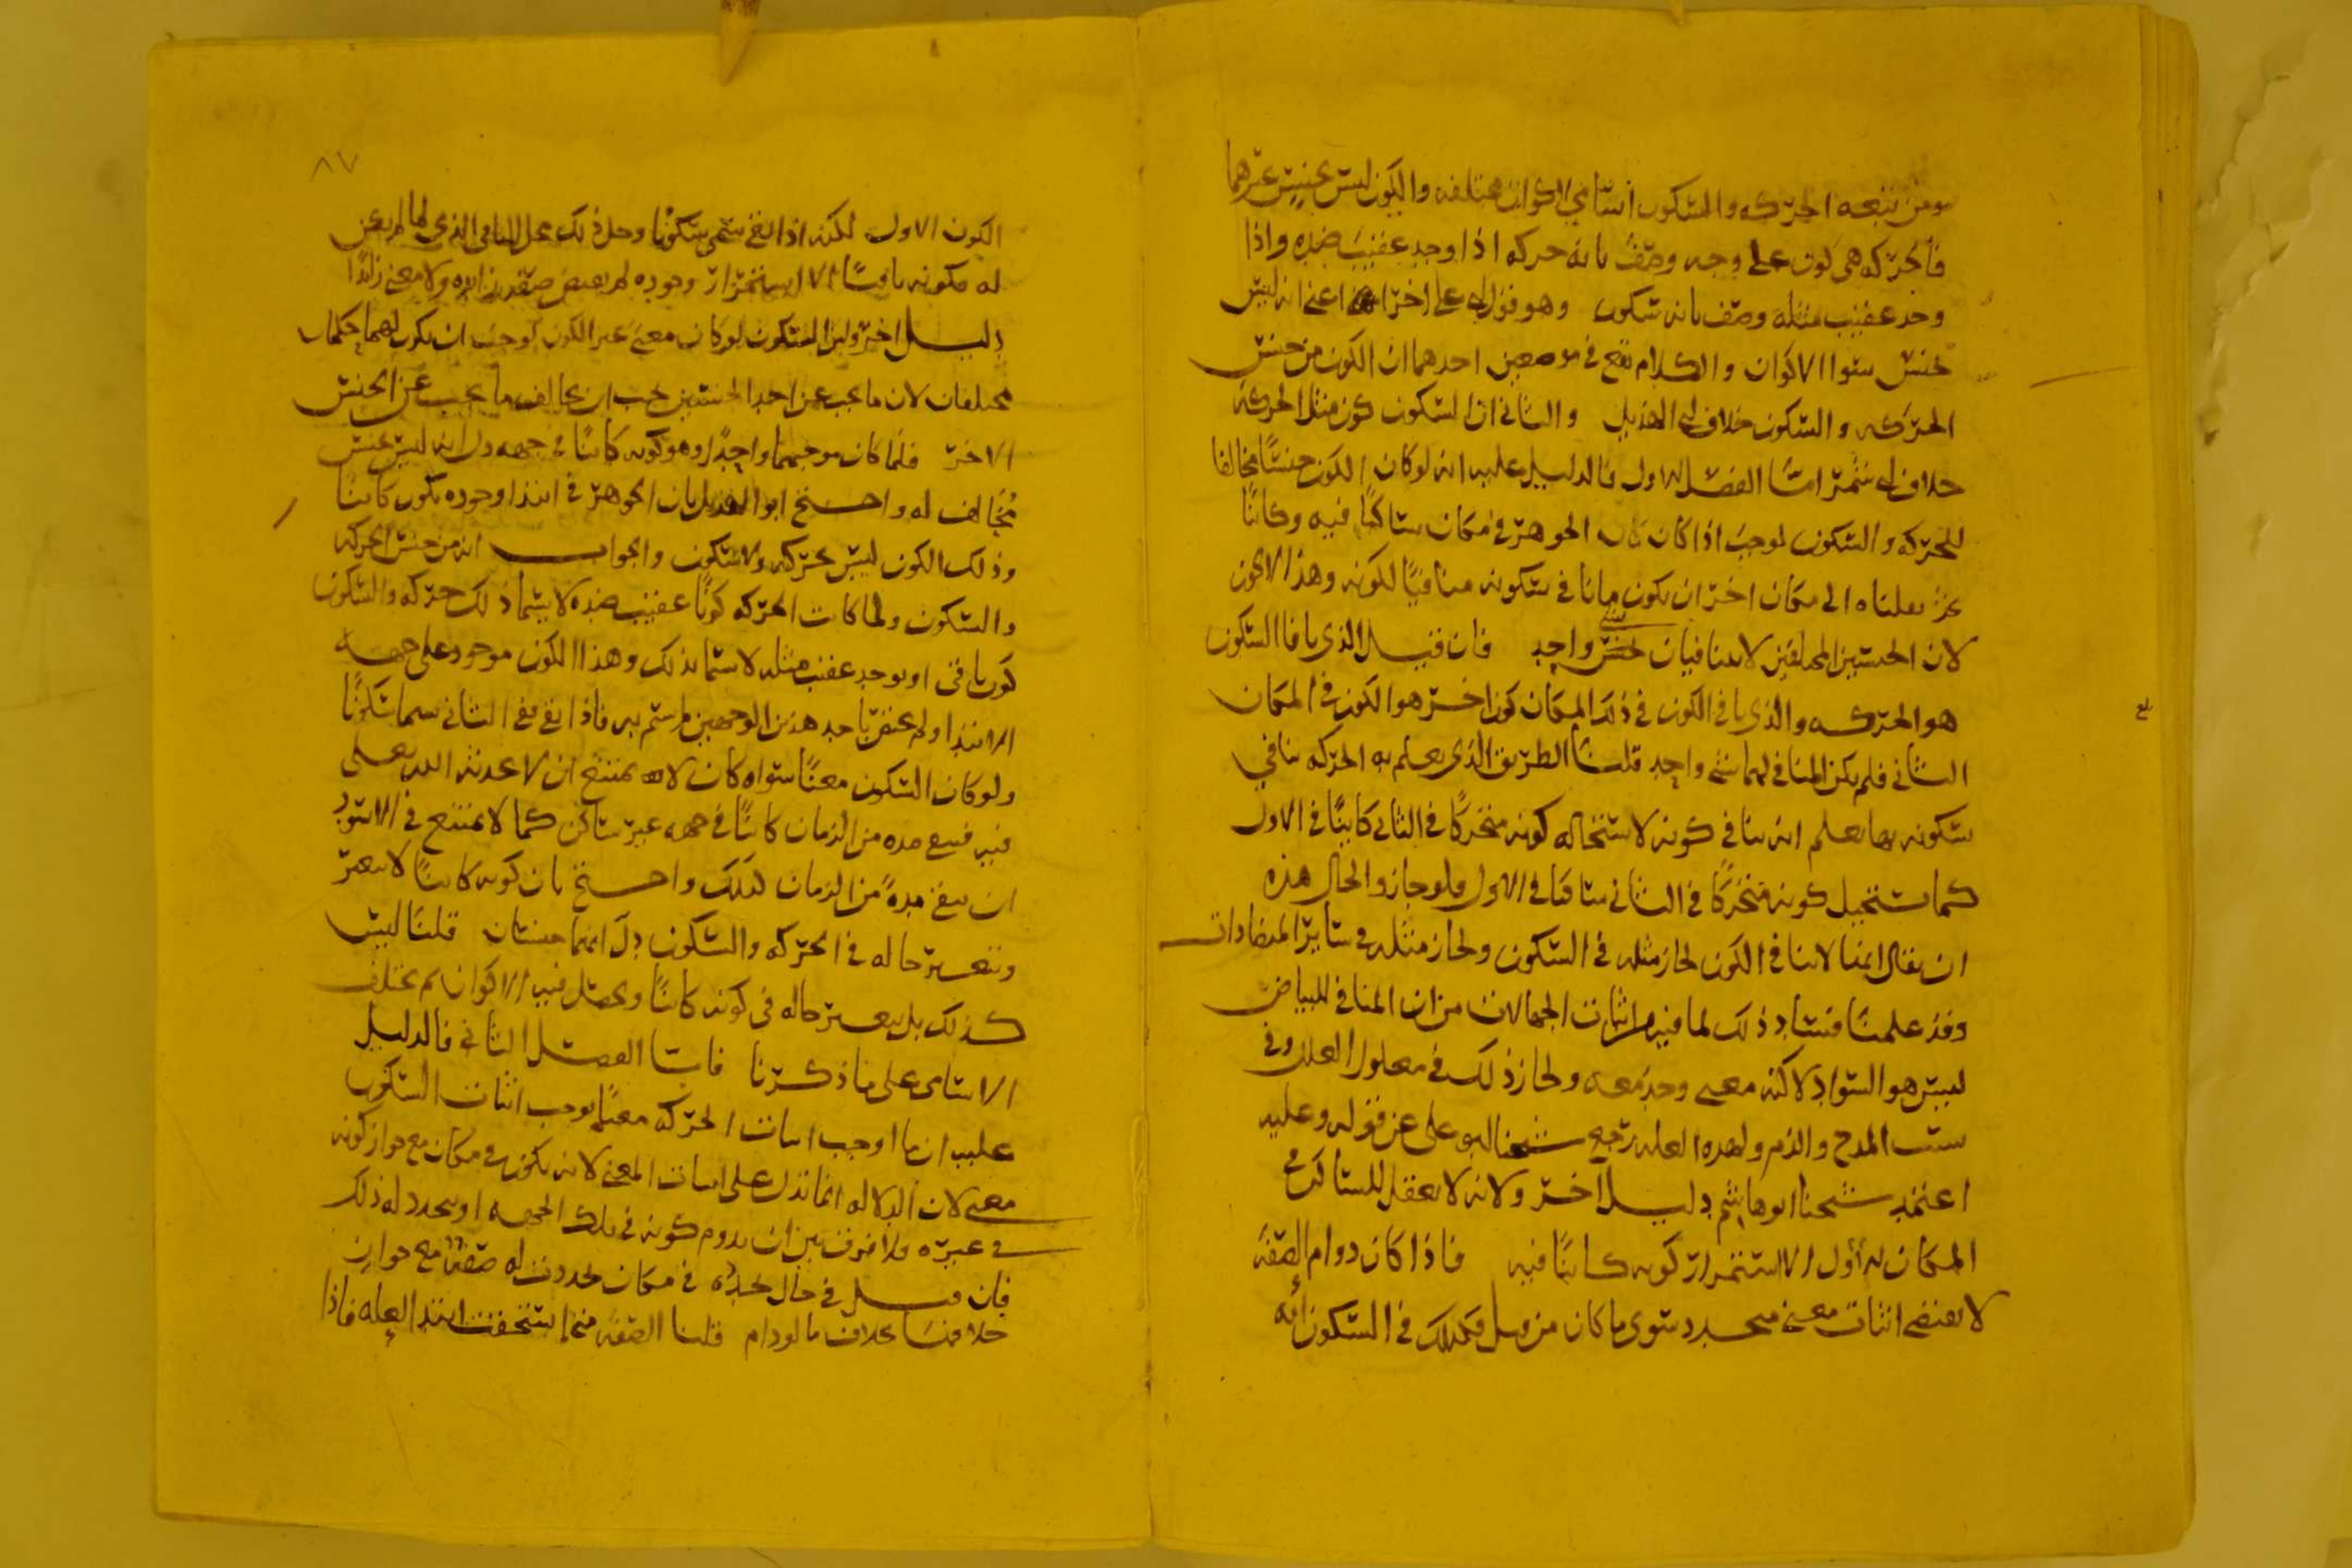 ومن تبعه الحركه والسكون اسامي الاكوان مختلفه والكون ليس بجنس غيرهما
فالحركه هي كون على وجه وصف بانه حركه اذا وجد عقيب ضده واذا
وجد عقيب مثله وصف بانه سكون وهو قول ابي علي اخرا اعني انه ليس
بجنس سوا الاكوان والكلام يقع في موضعين احدهما ان الكون من جنس
الحركه والسكون خلاف ابي الهذيل والثاني ان السكون كون مثل الحركه
خلاف ابي شمر امّا الفصل الاول فالدليل عليه انه لو كان الكون جنسًا مخالفا
للحركه والسكون لوجب اذا كان الجوهر في مكان ساكنًا فيه وكائنًا
نقلناه الى مكان اخر ان يكون مانا في سكونه منافيًا لكونه وهذا لا يجوز
لان الجنسين المختلفين لا ينافيان بجنس واحد فان قيل الذي نافا السكون
هو الحركه والذي نافي الكون في ذلك المكان كون اخر هو الكون في المكان
الثاني فلم يكن المنافي لهما شي واحد قلنا الطريق الذي يعلم به الحركه تنافي
سكونه بها يعلم انه ينافي كونه لاستحاله كونه متحركًا في الثاني كاينًا في الاول
كما يستحيل كونه متحركًا في الثاني ساكنا في الاول ولو جاز والحال هذه
ان يقال انها لا تنافي الكون لجاز مثله في السكون ولجاز مثله في سائر المتضادات
وقد علمنا فساد ذلك لما فيه من اثبات الجهالات من ان المنافي للبياض
ليس هو السواد لاكنه معنى وجد معه ولجاز ذلك في معلول العلل وفي
سبب المدح والذم ولهذه العله رجع شيخنا ابو علي عن قوله وعليه
اعتمد شيخنا ابو هاشم دليل اخر ولانه لا يعقل للساكن في
المكان الاول الا استمرار كونه كاينًا فيه فاذا كان دوام الصفه
لا يقتضي اثبات معنى متجدد سوى ما كان من قبل فكذلك في السكون انه
٨٧
الكون الاول لكنه اذا بقي سمي سكونًا وحل ذلك محل الباقي الذي لما لم يكن
له بكونه باقيًا الا استمرار وجوده لم يقتض صفه زايده ولا معنى زايدًا
دليل اخر ولان السكون لو كان معنى غير الكون لوجب ان يكون لهما حكمان
مختلفان لان ما يجب عن احد الجنسين يجب ان يخالف ما يجب عن الجنس
الاخر فلما كان موجبهما واحدًا وهو كونه كائنًا في جهه دل انه ليس بجنس
مُخالف له واحتج ابو الهذيل بان الجوهر في ابتدا وجوده يكون كائنًا
وذلك الكون ليس بحركه ولا سكون والجواب انه من جنس الحركه
والسكون ولما كانت الحركه كونًا عقيب ضده لا يسما ذلك حركه والسكون
كون باقى او يوجد عقيب مثله لا يسما بذلك وهذا الكون موجود على جهه
الابتدا ولم يختص باحد هذين الوجهين لم يسم به فاذا بقي في الثاني سما سكونًا
ولو كان السكون معنًا سواه كان لا يمتنع ان لا يحدثه الله تعالى
فيه فيبقى مده من الزمان كائنًا في جهه غير ساكن كما لا يمتنع في الاسود
ان يبقى مدهً من الزمان كذلك واحتج بان كونه كائنًا لا يتغير
وتتغير حاله في الحركه والسكون دل انهما جنسان قلنا ليس
كذلك بل يتغير حاله في كونه كائنًا ويحصل فيه الاكوان ثم تختلف
الاسامى على ما ذكرنا فامّا الفصل الثاني فالدليل
عليه ان ما اوجب اثبات الحركه معنًا يوجب اثبات السكون
معنى لان الدلاله انما تدل على اثبات المعنى لانه يكون في مكان مع جواز كونه
في غيره ولا فرق بين ان يدوم كونه في تلك الجهه او يتجدد له ذلك
فان قيل في حال تحركه في مكان تجددت له صفةٌ مع جواز
خلافها بخلاف ما لو دام قلنا الصفه متى استحقت ابتدا لعله فاذا